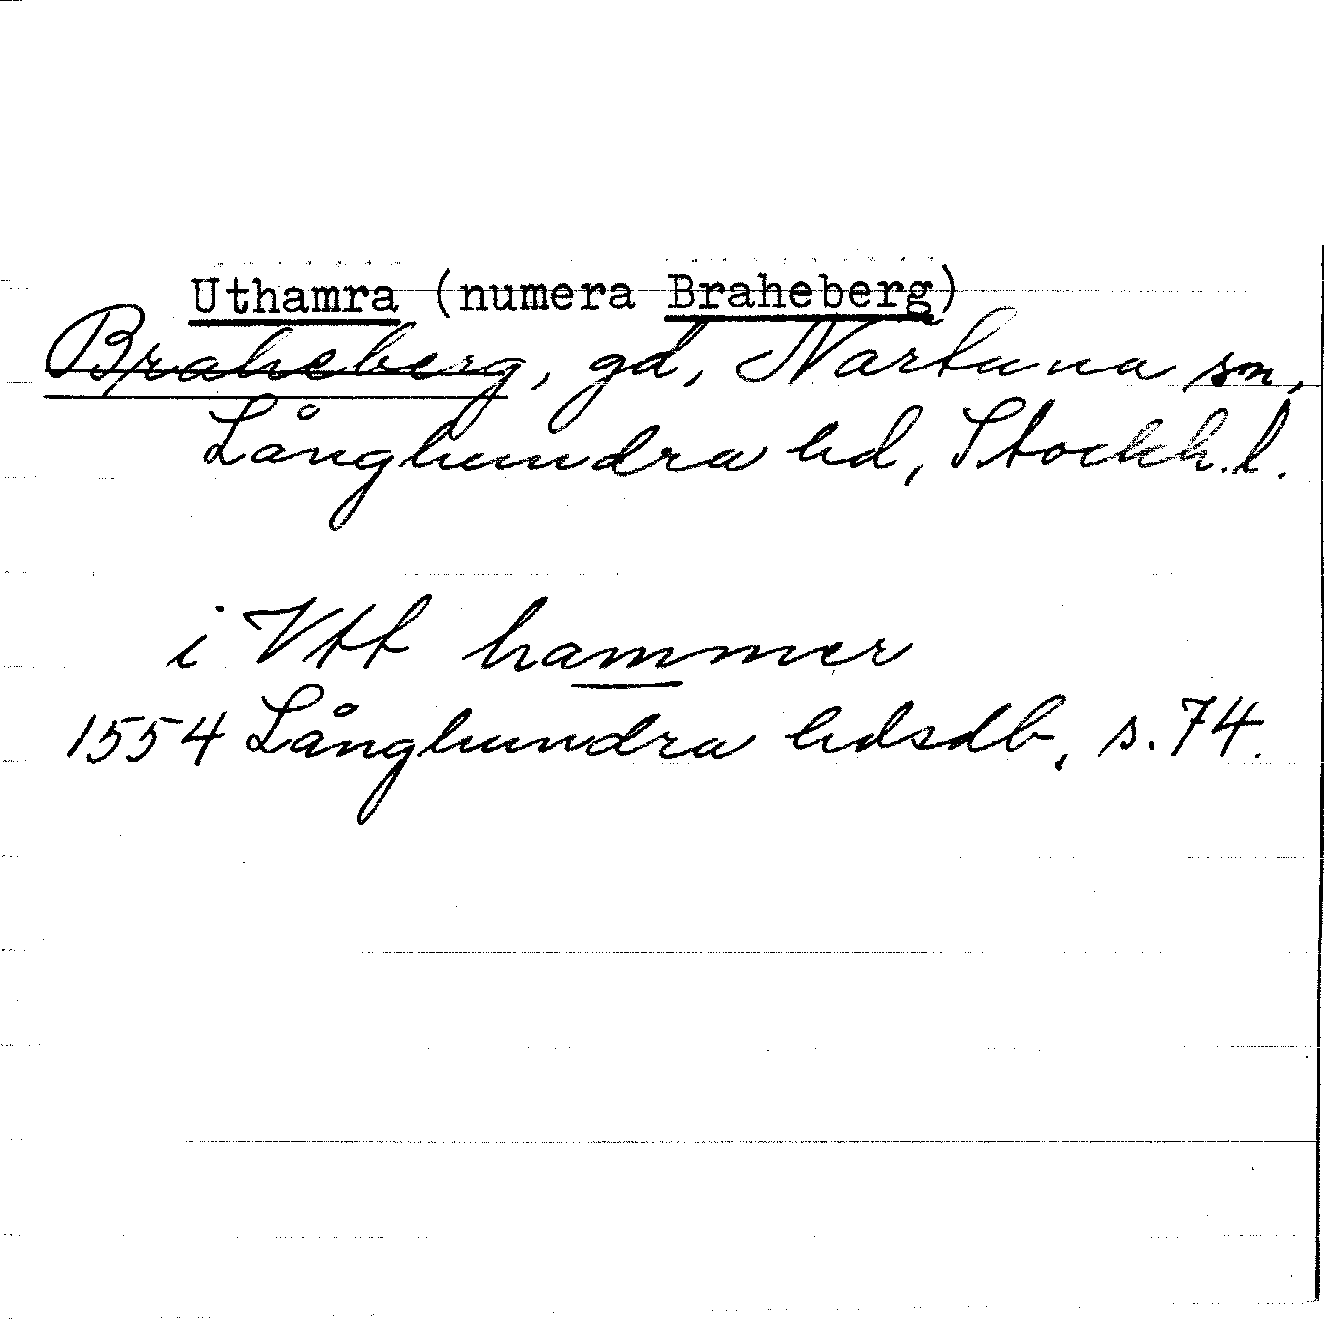 Uthamra (numera Braheberg)
Braheberg, gd, Nartuna sn,
Långhundra hd, Stockh. l.
i Vtt hammer
1554 Långhundra hdsdb, s. 74.